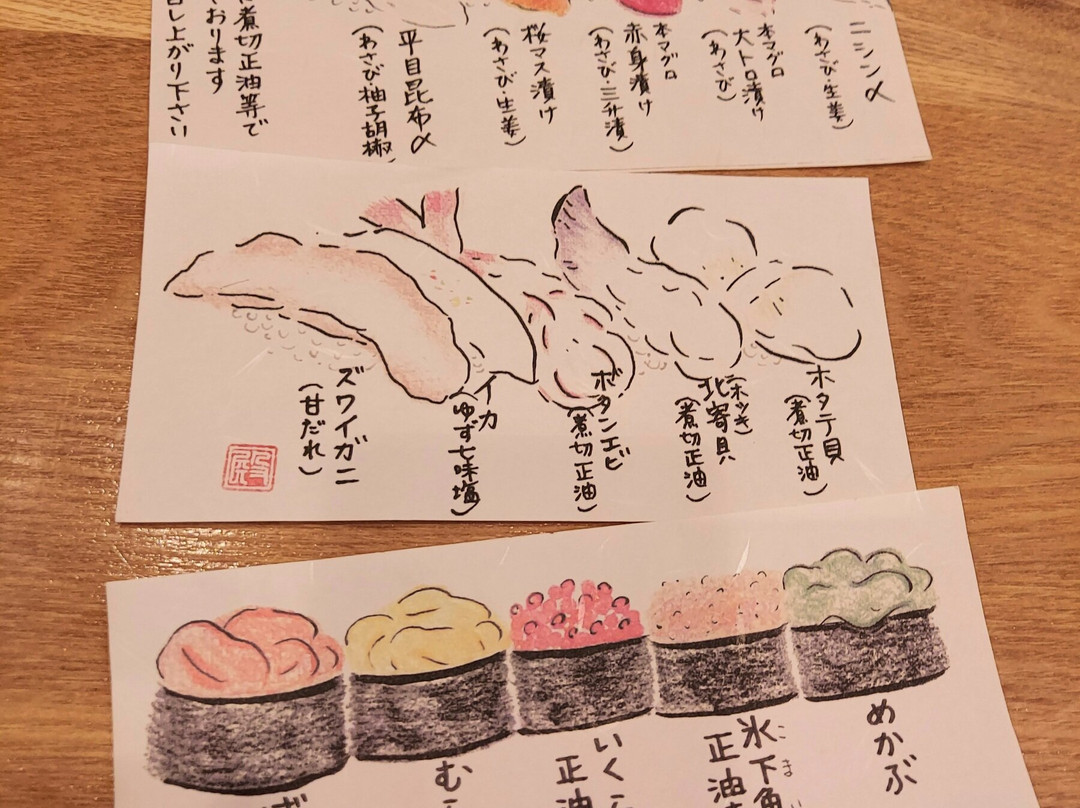 ニシン〆
(わさび・生姜)
本マグロ
大トロ漬け
(わさび)
本マグロ
赤身漬け
(わさび・三升漬)
桜マス漬け
(わさび・生姜)
平目昆布〆
(わさび・柚子胡椒)
煮切正油等で
おります
し上がり下さい
ホタテ貝
(煮切正油)
(ホッき)
北寄貝
(煮切正油)
ボタンエビ
(煮切正油)
イカ
(ゆず七味塩)
ズワイガニ
(甘だれ)
めかぶ
こまい
氷下魚
正油
いくら
正油
む